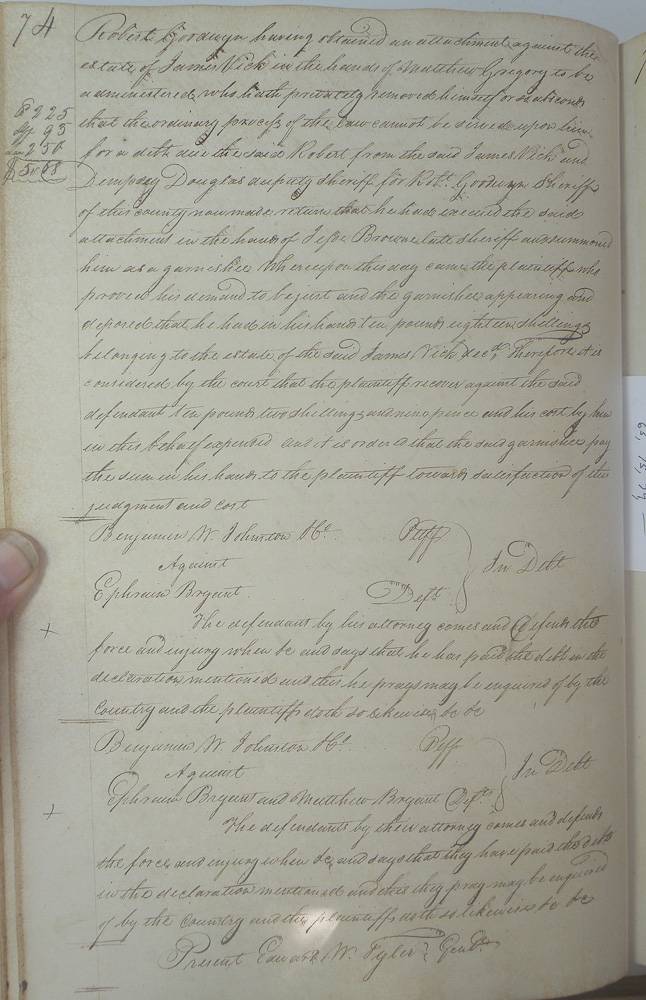 74
Robert Goodwyn having obtained an attachment against the
estate of James Vick in the hands of Matthew Gregory to be
administered, who hath privately removed himself or absconds
that the ordinary process of the law cannot be served upon him
for a debt due the said Robert from the said James Vick and
Dempsey Douglas deputy sheriff for Robt. Goodwyn Sheriff
of this county now made return that he had executed the said
attachment in the hands of Jesse Browne late sheriff and summoned
him as a garnishee Whereupon this day came the plaintiff who
proved his demand to be just and the garnishee appearing and
deposed that he had in his hands ten pounds eighteen shillings
belonging to the estate of the said James Vick decd. Therefore it is
considered by the court that the plaintiff recover against the said
defendant ten pounds two shillings and nine pence and his cost by him
in this behalf expended and it is ordered that the said garnishee pay
the sum in his hands to the plaintiff towards satisfaction of this
judgment and cost
225
95
250
Benjamin W. Johnston &c. Plff
Against
In Debt
Ephraim Bryant Deft.
The defendant by his attorney comes and defends the
force and injury when &c and says that he has paid the debt in the
declaration mentioned and this he prays may be enquired of by the
Country and the plaintiffs doth so likewise &c &c
Benjamin W. Johnston &c. Plff
Against
In Debt
Ephraim Bryant and Matthew Bryant Defts.
The defendants by their attorney comes and defends
the force and injury when &c and says that they have paid the debt
in the declaration mentioned and this they pray may be enquired
of by the Country and the plaintiffs doth so likewise &c &c
Present Edward W. Tyler Gent.